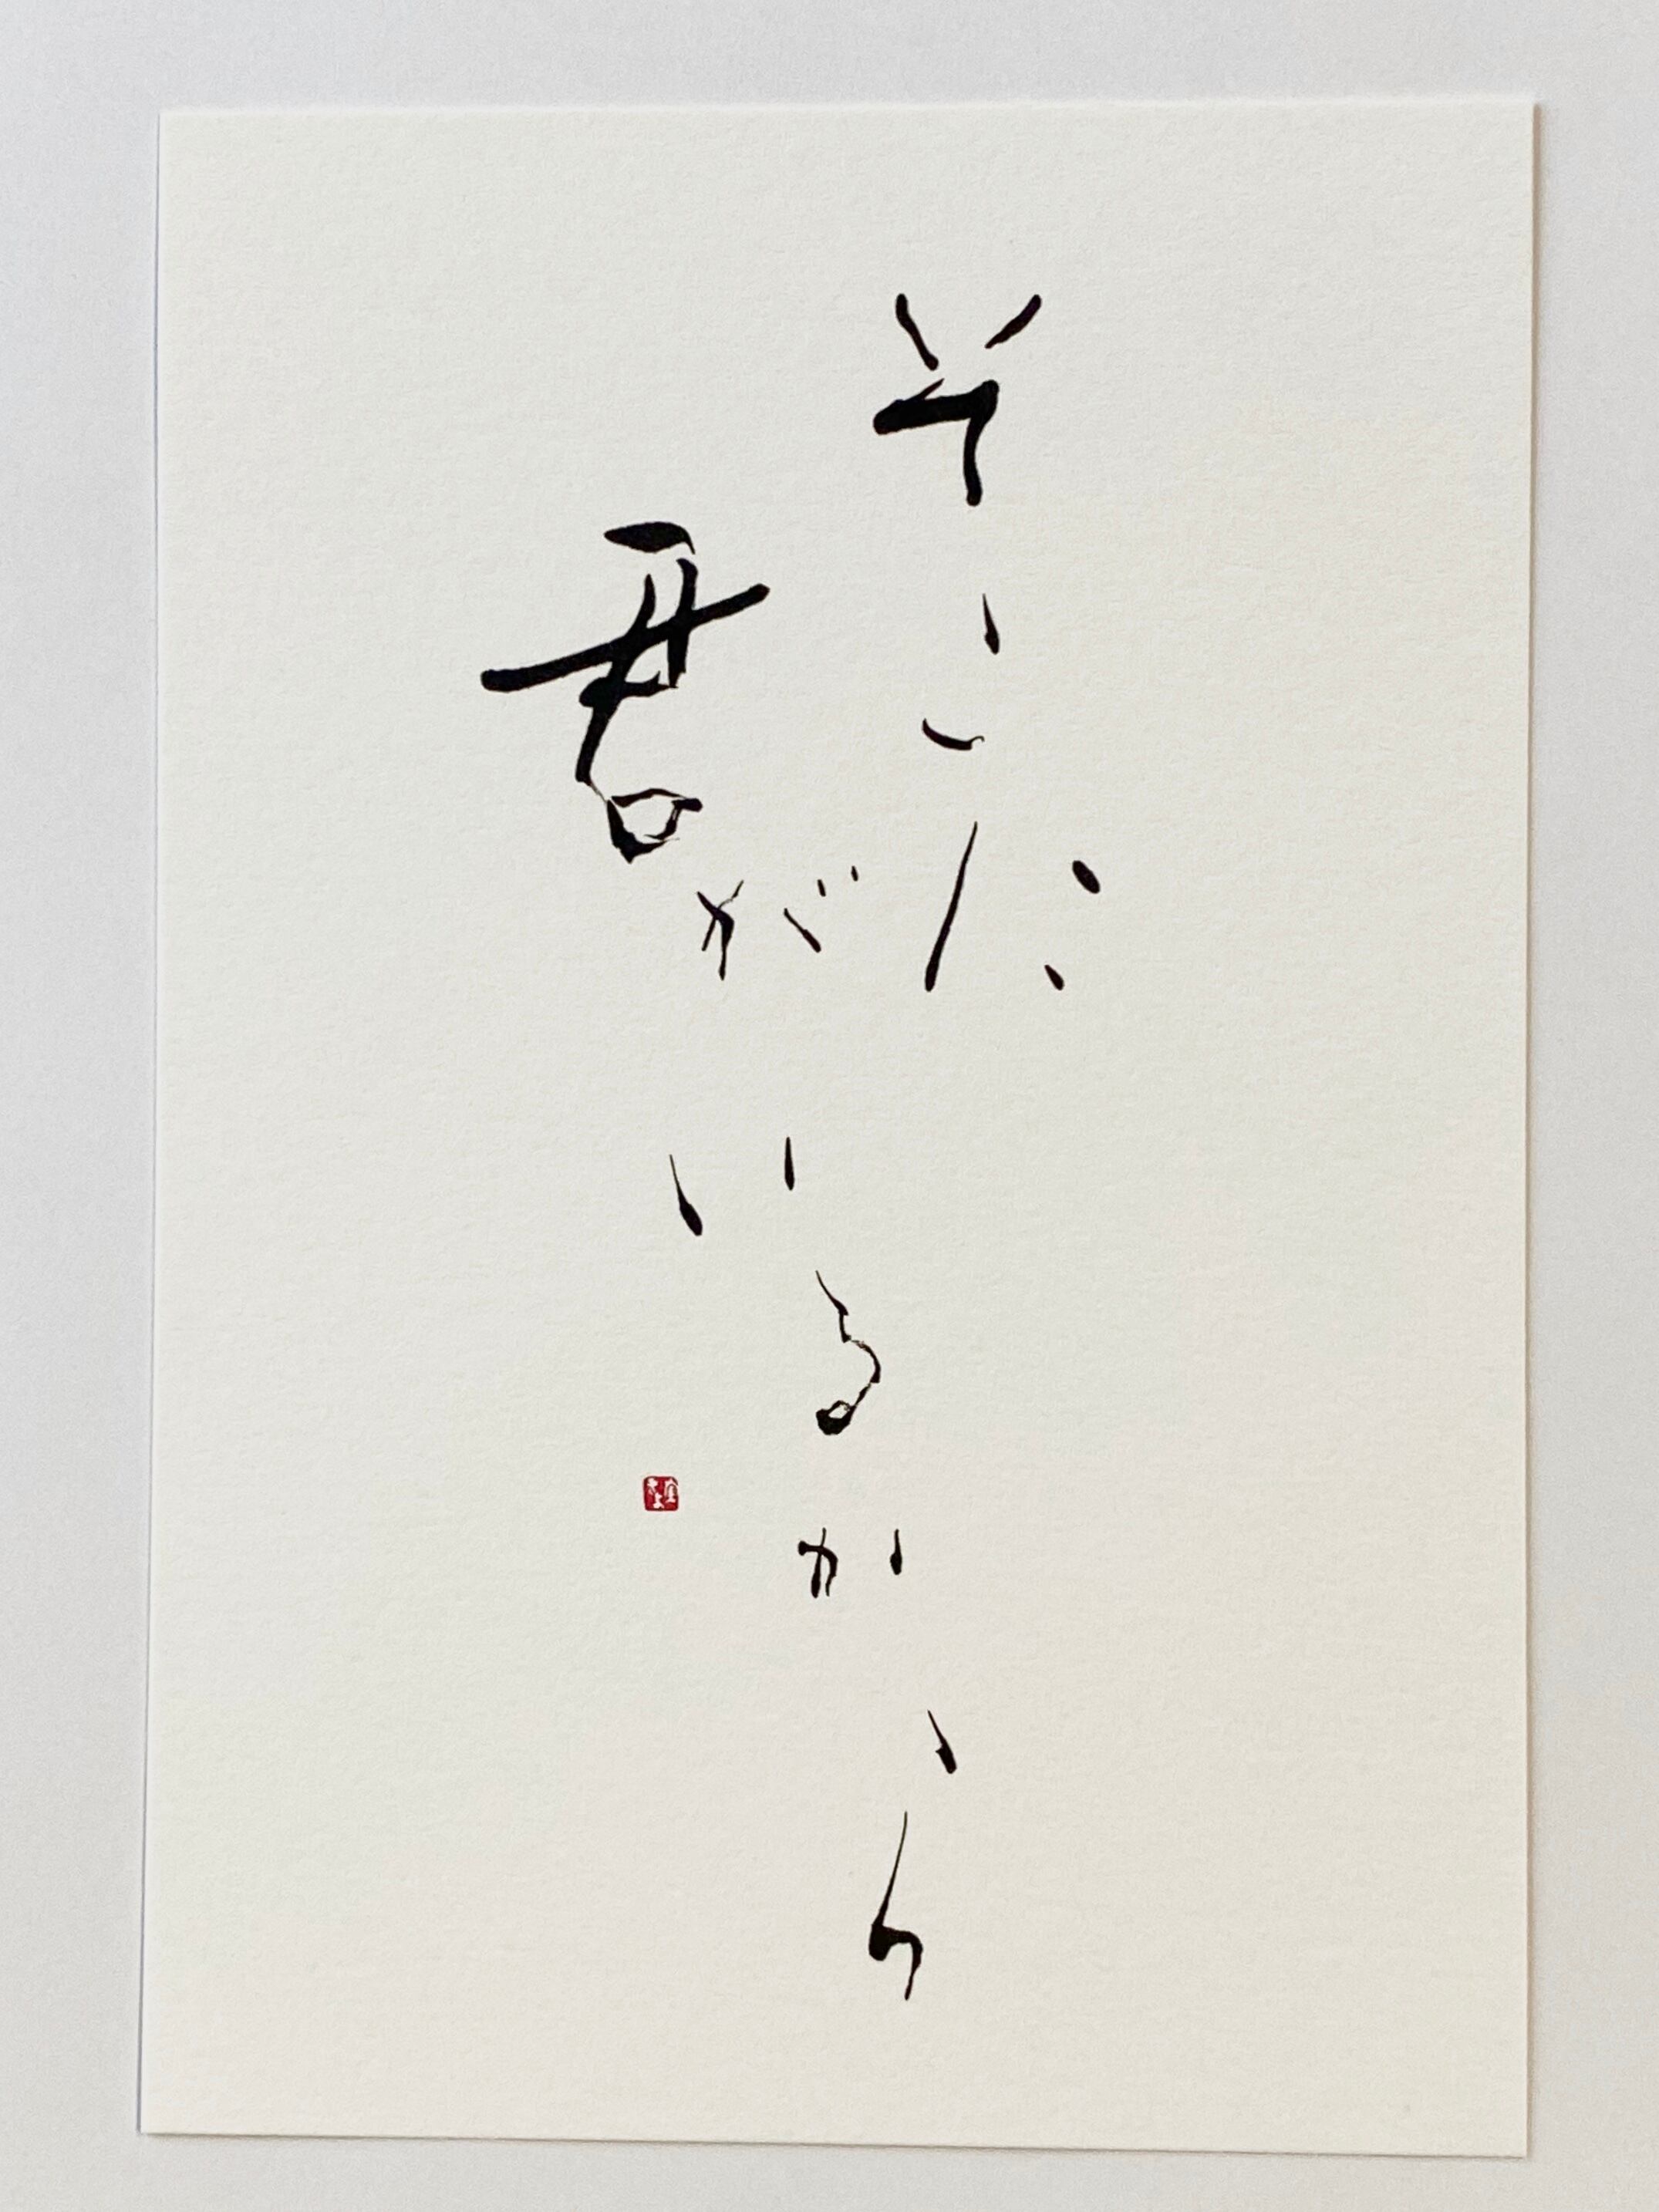 そこに
君がいるから